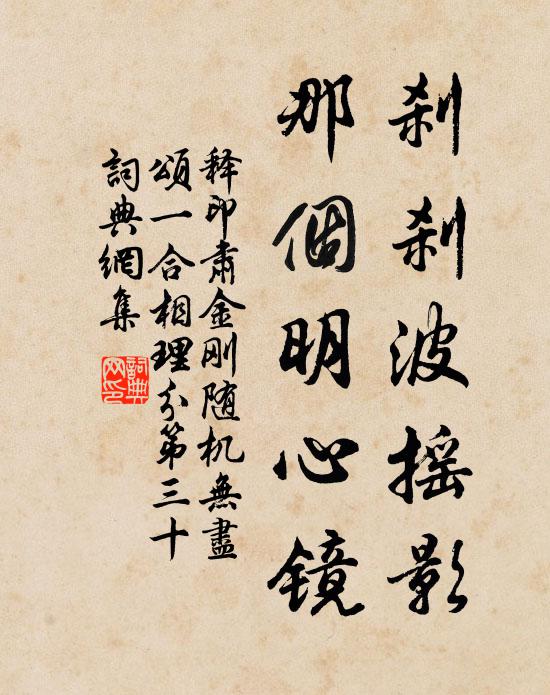 刹刹波摇影
那個明心镜
释印肃金刚随机無盡
頌一合相理分第三十
詞典網集
詞典網印